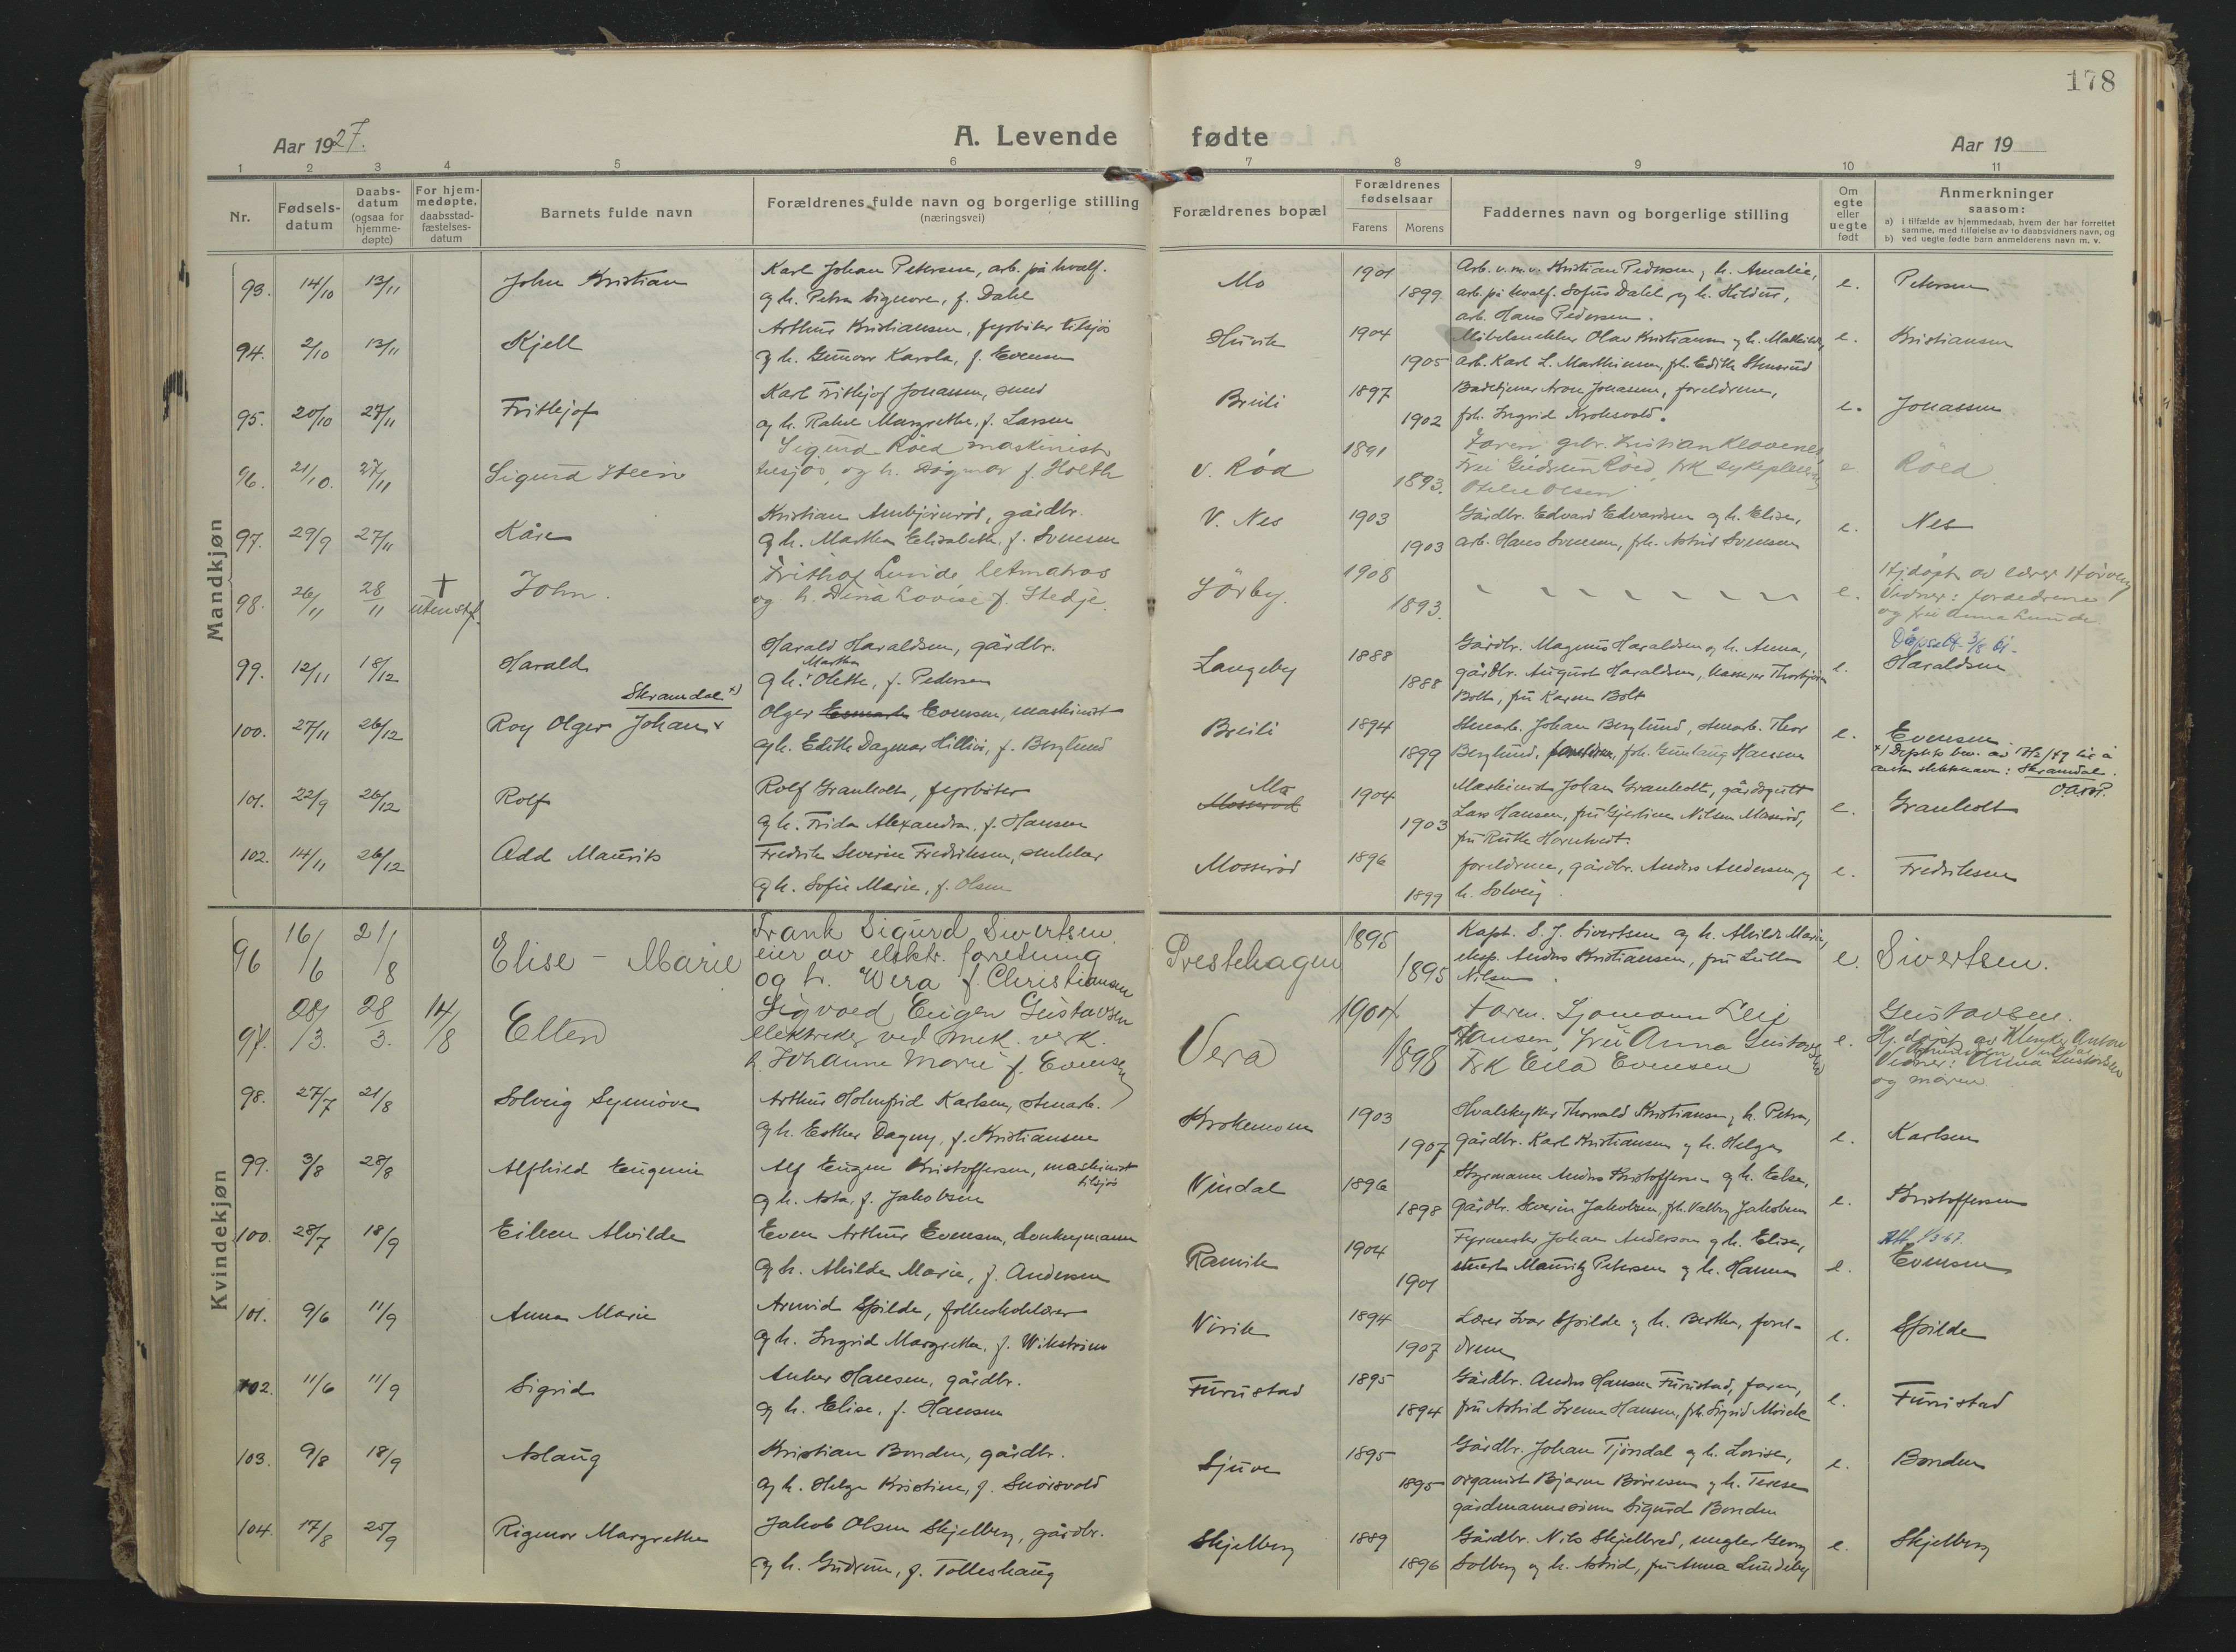 178
Aar 1927.
A. Levende fødte
Aar 19
1 2 3 4 5 6 7 8 9 10 11
Nr.
Fødsels-
datum
Daabs-
datum
(ogsaa for
hjemme-
døpte)
For hjem-
medøpte,
daabsstad-
fæstelses-
datum
Barnets fulde navn
Forældrenes fulde navn og borgerlige stilling
(næringsvei)
Forældrenes bopæl
Forældrenes
fødselsaar
Farens Morens
Faddernes navn og borgerlige stilling
Om
egte
eller
uegte
født
Anmerkninger
saasom:
a) i tilfælde av hjemmedaab, hvem der har forrettet
samme, med tilføielse av to daabsvidners navn, og
b) ved uegte fødte barn anmelderens navn m. v.
Mandkjøn
93. 14/10 13/11 John Kristian
Karl Johan Petersen, arb. på hvalf.
og h. Petra Signore, f. Dahl
Mo 1901 1899
Arb. v. m.v. Kristian Pedersen og h. Amalie,
arb. på hvalf. Sofus Dahl og h. Hildur,
arb. Hans Pedersen.
e. Petersen
94. 2/10 13/11 Kjell
Arthur Kristiansen, fyrbøter tilsjøs
og h. Gunvor Karola, f. Evensen
Huvik 1904 1905
Møbelsnekker Olav Kristiansen og h. Mathilde,
arb. Karl L. Marthinsen, frk. Edith Stensrud
e. Kristiansen
95. 20/10 27/11 Frithjof
Karl Frithjof Jonassen, smed
og h. Rakel Margrethe, f. Larsen
Breili 1897 1902
Badetjener Aron Jonassen, foreldrene,
frk. Ingrid Krohsvold.
e. Jonassen
96. 21/10. 27/11 Sigurd Stein
Sigurd Röed maskinist
tilsjøs, og h. Dagmar f. Holth
V. Röd 1891 1893.
Faren, gbr. Kristian Klavenes
Fru Gudrun Röed, frk sykepleier
Otelie Olsen
e. Röed
97. 29/9 27/11 Kåre
Kristian Aubjørnrød, gårdbr.
og h. Martha Elisabeth, f. Svensen
V. Nes 1903 1903
Gårdbr. Edvard Edvardsen og h. Elise,
arb. Hans Svensen, frk. Astrid Svensen
e. Nes
98. 26/11 28/11 † uten stf. John.
Frithof Lunde, letmatros
og h. Dina Lovise f. Stedje.
Sörby. 1908 1893.
e. Hj.døpt av lærer
Vidner: foreldrene
og fru Anna Lunde.
99. 12/11 18/12 Harald
Harald Haraldsen, gårdbr.
Martha
og h. Olette, f. Pedersen
Langeby 1888 1888
Gårdbr. Magnus Haraldsen og h. Anna,
gårdbr. August Haraldsen, Thorbjørn
Bolt, fru Karen Bolt
e. Dåpsatt. 3/8 61.
Haraldsen
Skramdal x)
100. 27/11 26/12 Roy Olger Johan x
Olger Evensen, maskinist
og h. Edith Dagmar Hillevi, f. Berglund
Breili 1894 1899
Stenarb. Johan Berglund, stenarb. Thor
Berglund, frk. Gunlaug Hansen
e. Evensen
Skramdal.
101. 22/9 26/12 Rolf
Rolf Granholt, fyrbøter
og h. Frida Alexandra, f. Hansen
Mo
Mosserød 1904 1903
Maskinist Johan Granholt, gårdsgutt
Lars Hansen, fru Gjertine Nilsen Mosserød,
fru Ruth Horntvedt.
e. Granholt
102. 14/11 26/12 Odd Mauritz
Fredrik Severin Fredriksen, snekker
og h. Sofie Marie, f. Olsen
Mosserød 1896 1899
foreldrene, gårdbr. Anders Andersen og
h. Solveig
e. Fredriksen
Kvindekjøn
96 16/6 21/8 Elise - Marie
Frank Sigurd Sivertsen.
eier av elektr. forretning
og h. Wera f. Christiansen
Prestehagen 1895 1895
Kapt. S. J. Sivertsen og h. Alvilde Marie,
eksp. Anders Kristiansen, fru Lull
Nilsen.
e. Sivertsen.
97. 28/3. 28/3. 14/8 Ellen
Sigvald Eugen Gustavsen
elektriker ved mek. verk.
h. Johanne Marie f. Evensen
Vera 1904 1898
Faren. Sjømann Leif
Hansen, Fru Anna Gustavsen
Frk Ella Evensen
e. Gustavsen.
Hj. døpt av Klokker Anton
Vidner: Anna Gustavsen
og moren
98. 27/7 21/8 Solveig Synnøve
Arthur Holmfrid Karlsen, stenarb.
og h. Esther Dagny, f. Kristiansen
Krokemoen 1903 1907
Hvalskytter Thorvald Kristiansen og h. Petra,
gårdbr. Karl Kristiansen og h. Helga
e. Karlsen
99. 3/8 28/8 Alfhild Eugenie
Alf Eugen Kristoffersen, maskinist
tilsjøs
og h. Asta, f. Jakobsen
Vindal 1896 1898
Styrmann Anders Kristoffersen og h. Elise,
gårdbr. Severin Jakobsen, frk. Valborg Jakobsen
e. Kristoffersen
100. 28/7 18/9 Eileen Alvilde
Even Arthur Evensen, donkeymann
og h. Alvilde Marie, f. Andersen
Ramvik 1904 1901
Fyrmester Johan Anderson og h. Elise,
stuert Mauritz Petersen og h. Hanna
e. Att. 1/3 67.
Evensen
101. 9/6 11/9 Anna Marie
Arnvid Spilde, folkeskolelærer
og h. Ingrid Margrethe, f. Wikstrøm
Virik 1894 1907
Lærer Ivar Spilde og h. Bertha, forel-
drene
e. Spilde
102. 11/6 11/9 Sigrid
Anker Hansen, gårdbr.
og h. Elise, f. Hansen
Furustad 1895 1894
Gårdbr. Anders Hansen Furustad, faren,
fru Astrid Irene Hansen, frk. Sigrid
e. Furustad
103. 9/8 18/9 Aslaug
Kristian Bonden, gårdbr.
og h. Helga Kristine, f. Snørsvold
Sjuve 1895 1895
Gårdbr. Johan Tjøndal og h. Lovise,
organist Bjarne Børresen og h. Terese
gårdmannssønn Sigurd Bonden
e. Bonden
104. 17/8 25/9 Rigmor Margrethe
Jakob Olsen Skjelberg, gårdbr.
og h. Gudrun, f. Tolleshaug
Skjelberg 1889 1896
Gårdbr. Nils Skjelbred, megler Georg
Solberg og h. Astrid, fru Anna Lundeby
e. Skjelberg